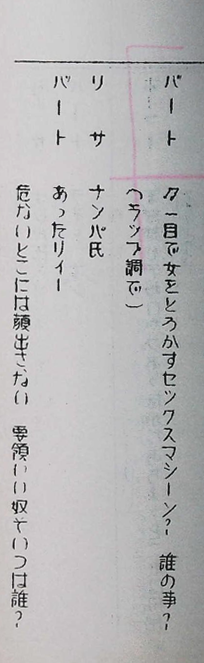 バート　夕一目で女をとろかすセックスマシーン？　誰の事？
（ラップ調で）
リサ　ナンパ氏
バート　あったりィー
危ないとこには顔出さない　要領いい奴そいつは誰？